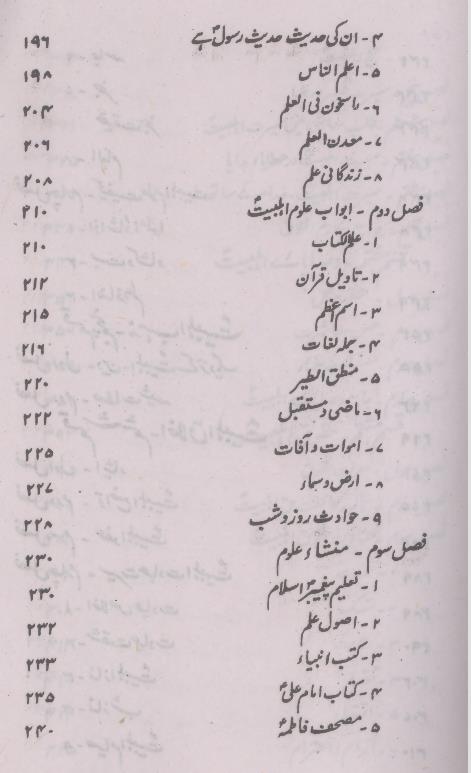 ۴۔ ان کی حدیث حدیث رسولؐ ہے ۱۹۶
۵۔ اعلم الناس ۱۹۸
۶۔ راسخون فی العلم ۲۰۴
۷۔ معدن العلم ۲۰۶
۸۔ زندگانیٔ علم ۲۰۸
فصل دوم ۔ ابواب علوم اہلبیتؑ ۲۱۰
۱۔ علم الکتاب ۲۱۰
۲۔ تاویل قرآن ۲۱۲
۳۔ اسم اعظم ۲۱۵
۴۔ جملہ لغات ۲۱۶
۵۔ منطق الطیر ۲۲۰
۶۔ ماضی و مستقبل ۲۲۲
۷۔ اموات و آفات ۲۲۵
۸۔ ارض و سماء ۲۲۷
۹۔ حوادث روز و شب ۲۲۸
فصل سوم ۔ منشاء علوم ۲۳۰
۱۔ تعلیم پیغمبرؐ اسلام ۲۳۰
۲۔ اصول علم ۲۳۲
۳۔ کتب انبیاء ۲۳۳
۴۔ کتاب امام علیؑ ۲۳۵
۵۔ مصحف فاطمہؑ ۲۴۰